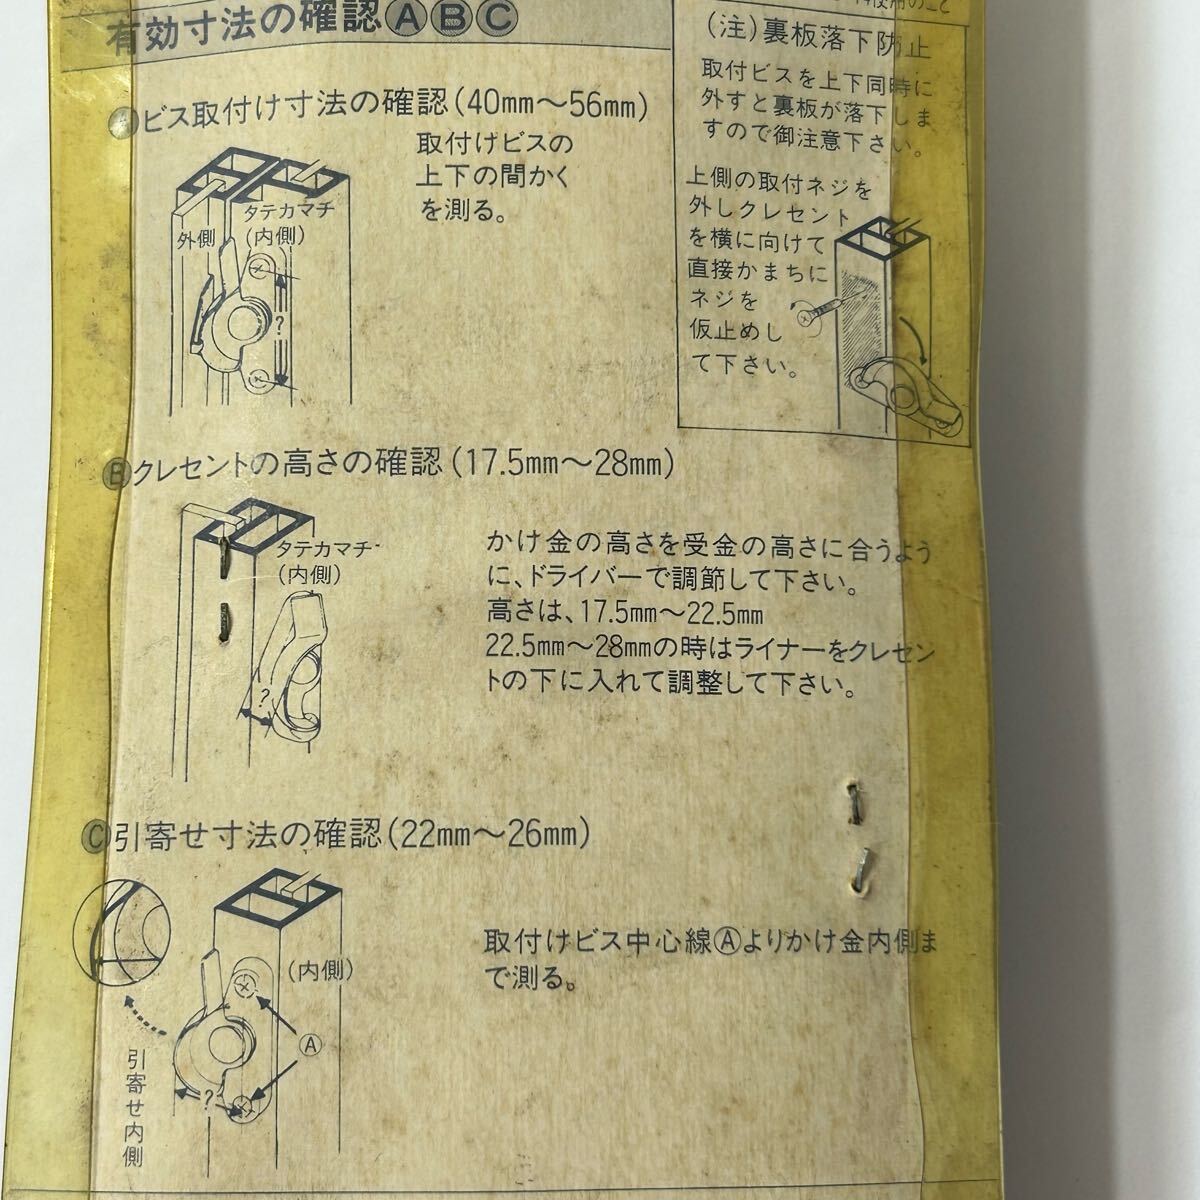 有効寸法の確認ⒶⒷⒸ
Ⓐビス取付け寸法の確認(40mm〜56mm)
取付けビスの
上下の間かく
を測る。
タテカマチ
(内側)
外側
?
(注)裏板落下防止
取付ビスを上下同時に
外すと裏板が落下しま
すので御注意下さい。
上側の取付ネジを
外しクレセント
を横に向けて
直接かまちに
ネジを
仮止めし
て下さい。
Ⓑクレセントの高さの確認(17.5mm〜28mm)
タテカマチ
(内側)
?
かけ金の高さを受金の高さに合うよう
に、ドライバーで調節して下さい。
高さは、17.5mm〜22.5mm
22.5mm〜28mmの時はライナーをクレセン
トの下に入れて調整して下さい。
Ⓒ引寄せ寸法の確認(22mm〜26mm)
(内側)
Ⓐ
?
引寄せ内側
取付けビス中心線Ⓐよりかけ金内側ま
で測る。